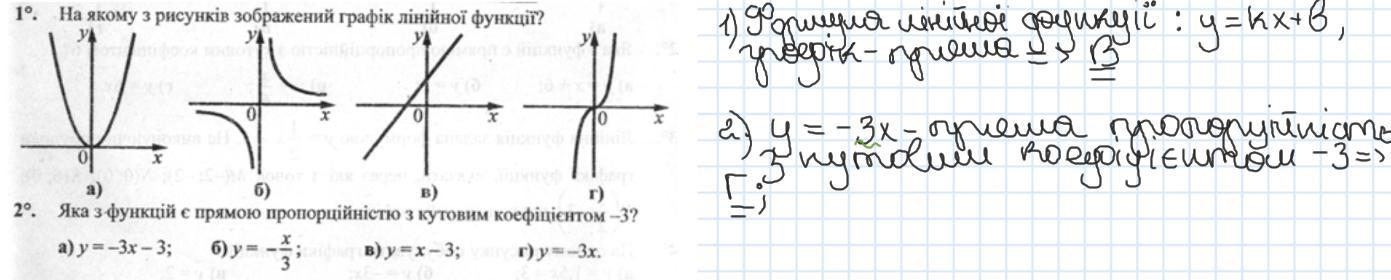 1°. На якому з рисунків зображений графік лінійної функції?
y y y y
0 x 0 x 0 x 0 x
а) б) в) г)
2°. Яка з функцій є прямою пропорційністю з кутовим коефіцієнтом –3?
а) y = –3x – 3; б) y = –x/3; в) y = x – 3; г) y = –3x.
1) Формула лінійної функції : y = kx + b,
графік – пряма => В
2) y = -3x – пряма пропорційність
з кутовим коефіцієнтом -3 =>
Г;